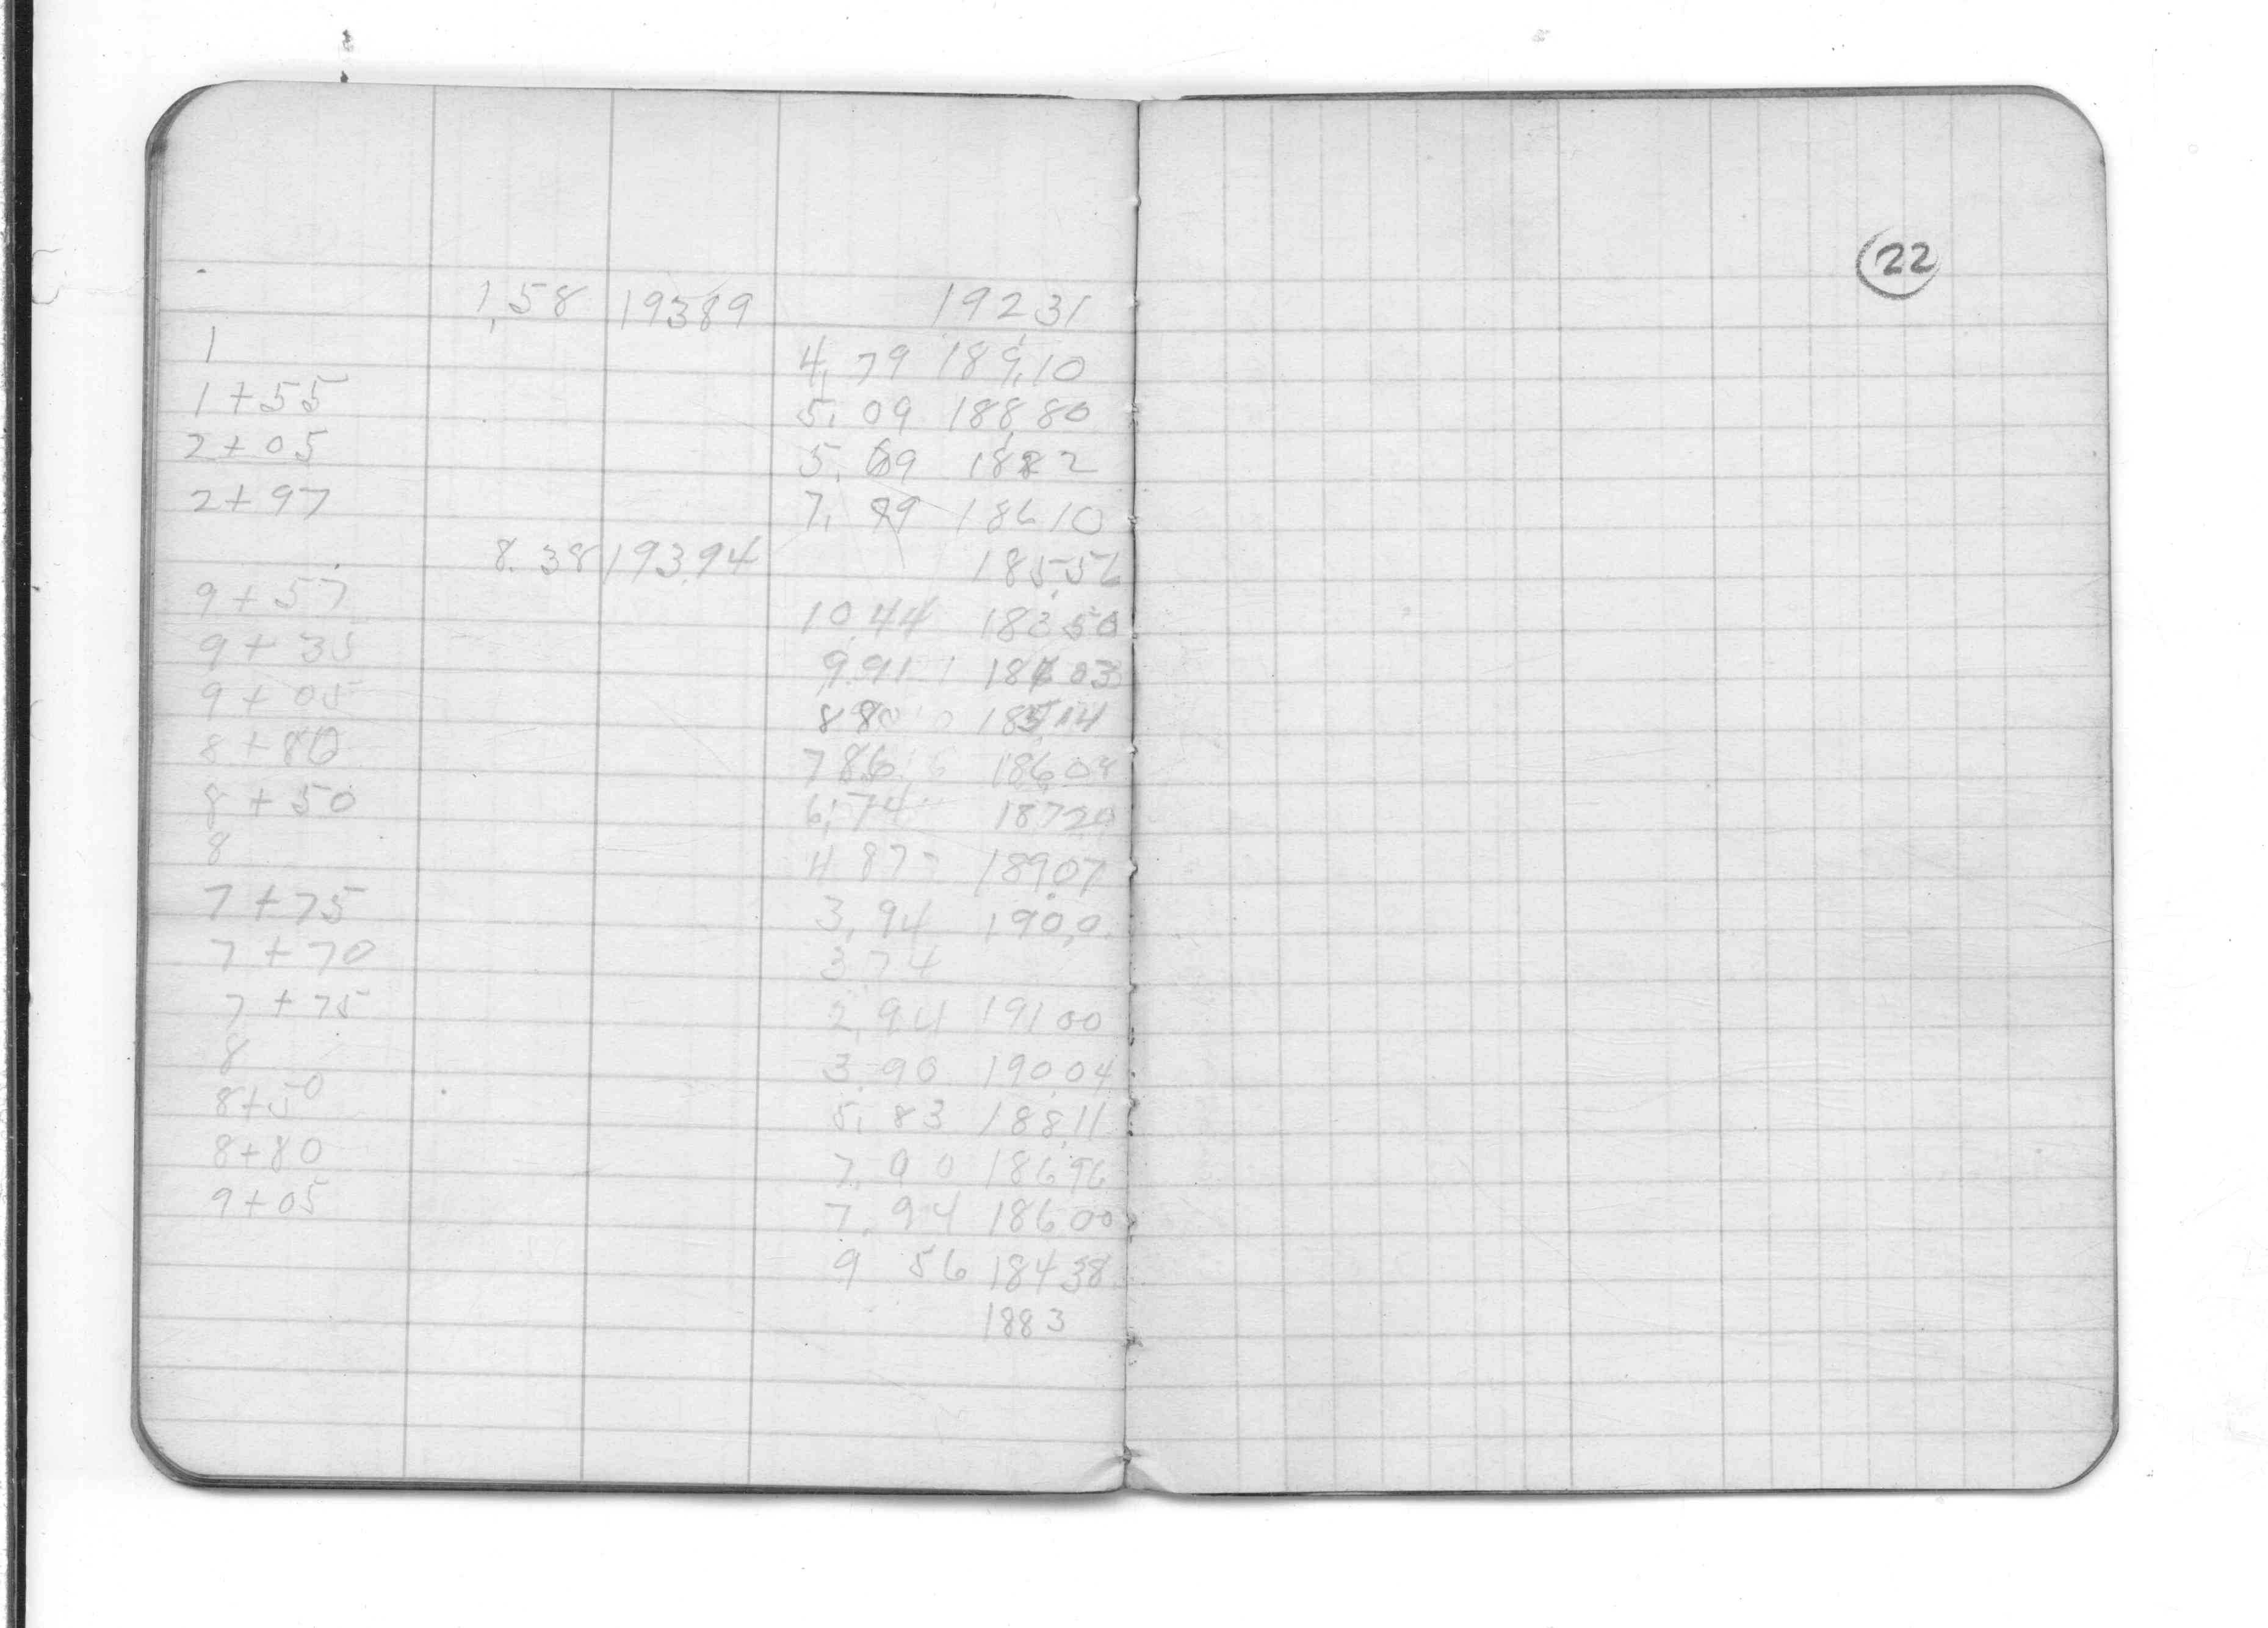 1,58 19389 19231
1 4,79 189,10
1+55 5,09 188,80
2+05 5,69 1882
2+97 7,89 186 10
8.38 193.94 185.56
9+57 10,44 183,50
9+35 9.91 184 03
9+05 880 185,14
8+80 786 186 08
8+50 6,74 18720
8 4 87 189.07
7+75 3,94 190,0
7+70 3,74
7+75 2,94 191 00
8 3.90 190.04
8+50 5,83 188,11
8+80 7,90 186 96
9+05 7,94 186 00
9 56 184 38
1883
22